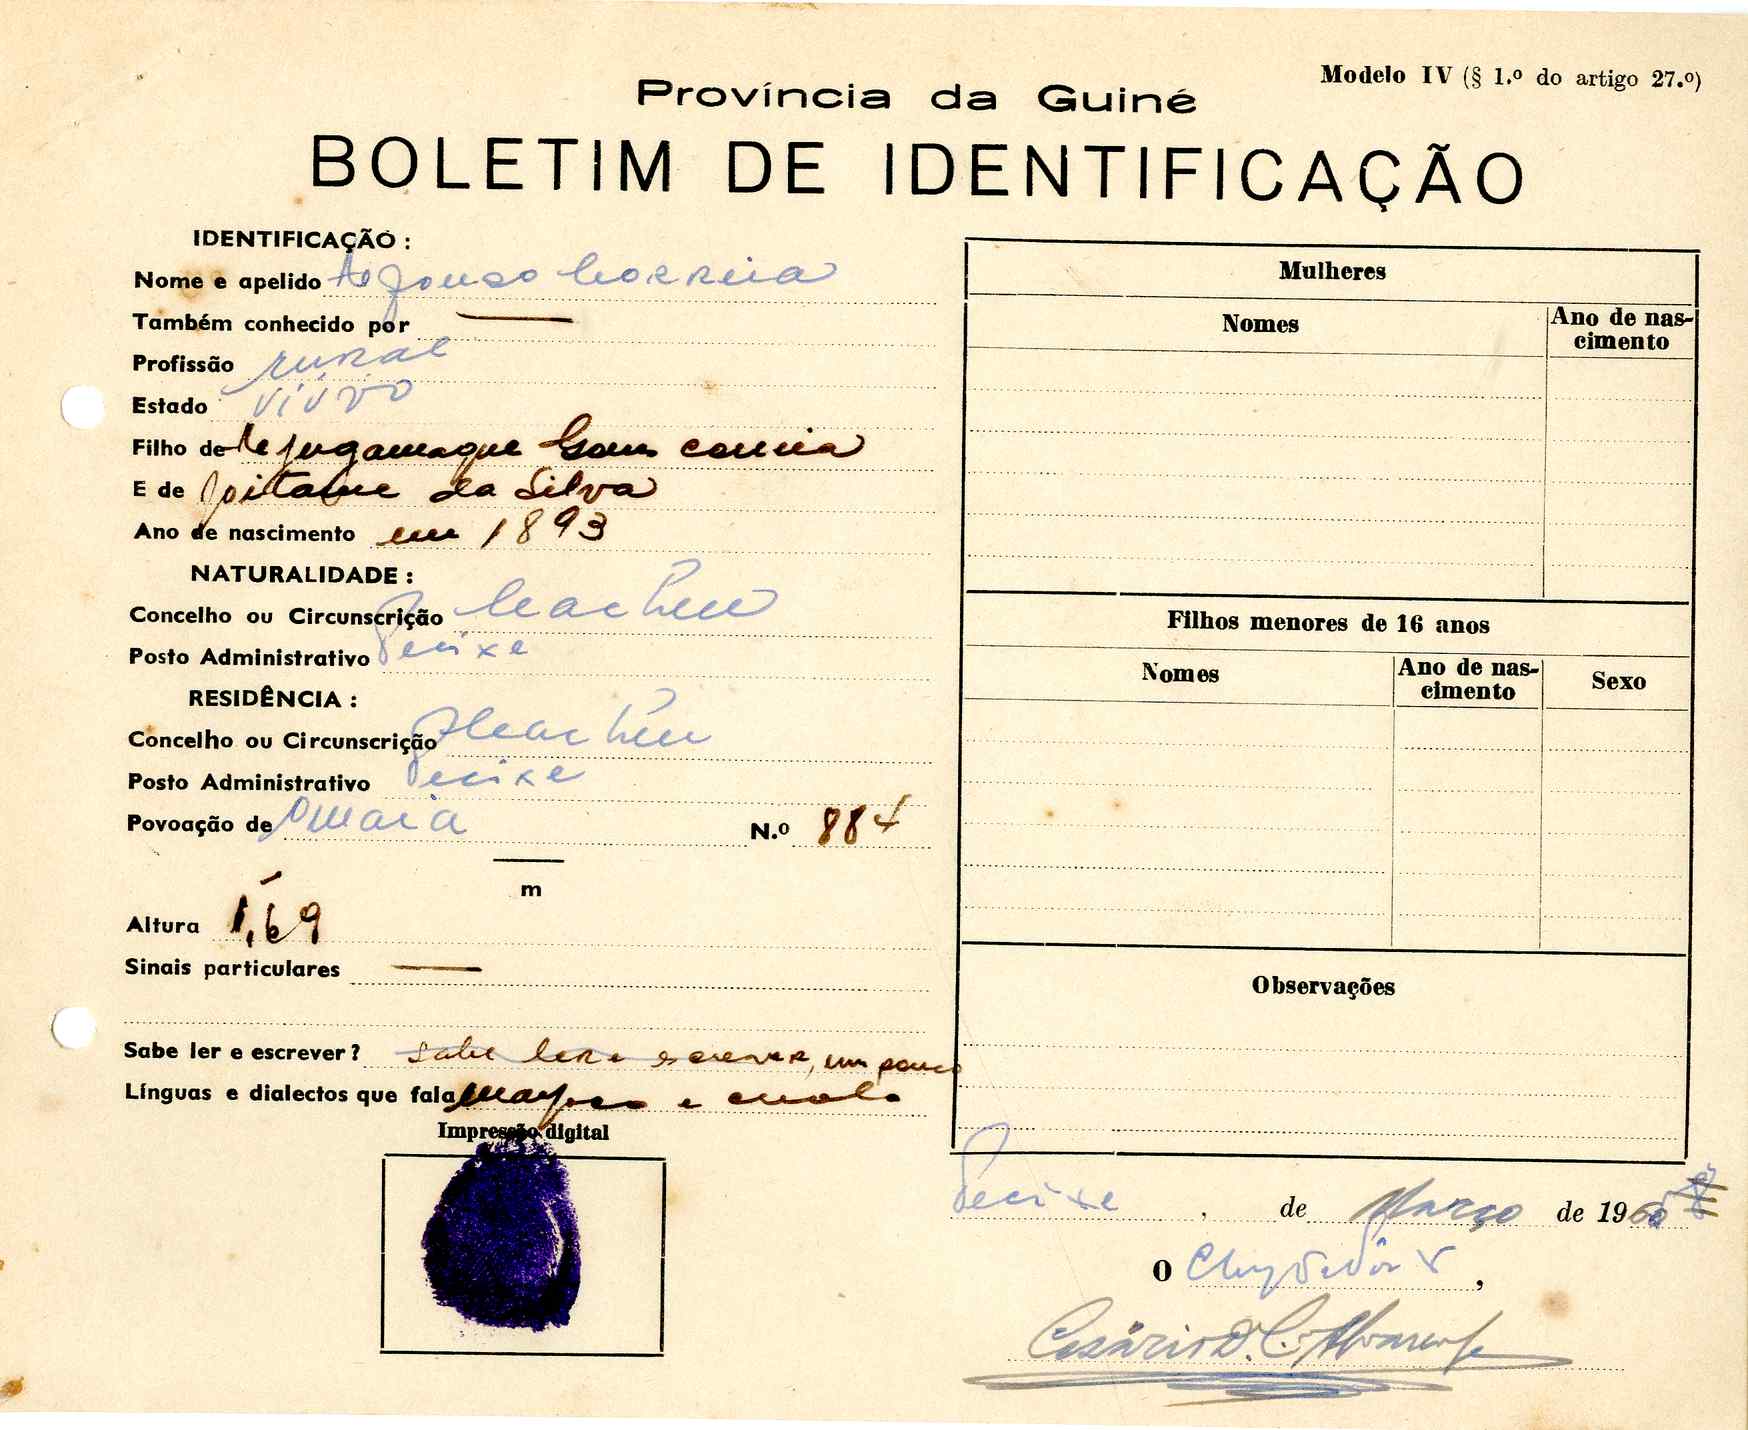 Modelo IV (§ 1.º do artigo 27.º)
Província da Guiné
BOLETIM DE IDENTIFICAÇÃO
IDENTIFICAÇÃO :
Nome e apelido Afonso Correia
Também conhecido por —
Profissão rural
Estado viúvo
Filho de Correia
E de da Silva
Ano de nascimento em 1893
NATURALIDADE :
Concelho ou Circunscrição
Posto Administrativo Pecixe
RESIDÊNCIA :
Concelho ou Circunscrição
Posto Administrativo Pecixe
Povoação de N.º 884
m
Altura 1,69
Sinais particulares —
Sabe ler e escrever? sabe ler e escrever, um pouco
Línguas e dialectos que fala e
Impressão digital
Mulheres
Nomes
Ano de nas-
cimento
Filhos menores de 16 anos
Nomes
Ano de nas-
cimento
Sexo
Observações
Pecixe, de Março de 196
O
Cesário D. C.